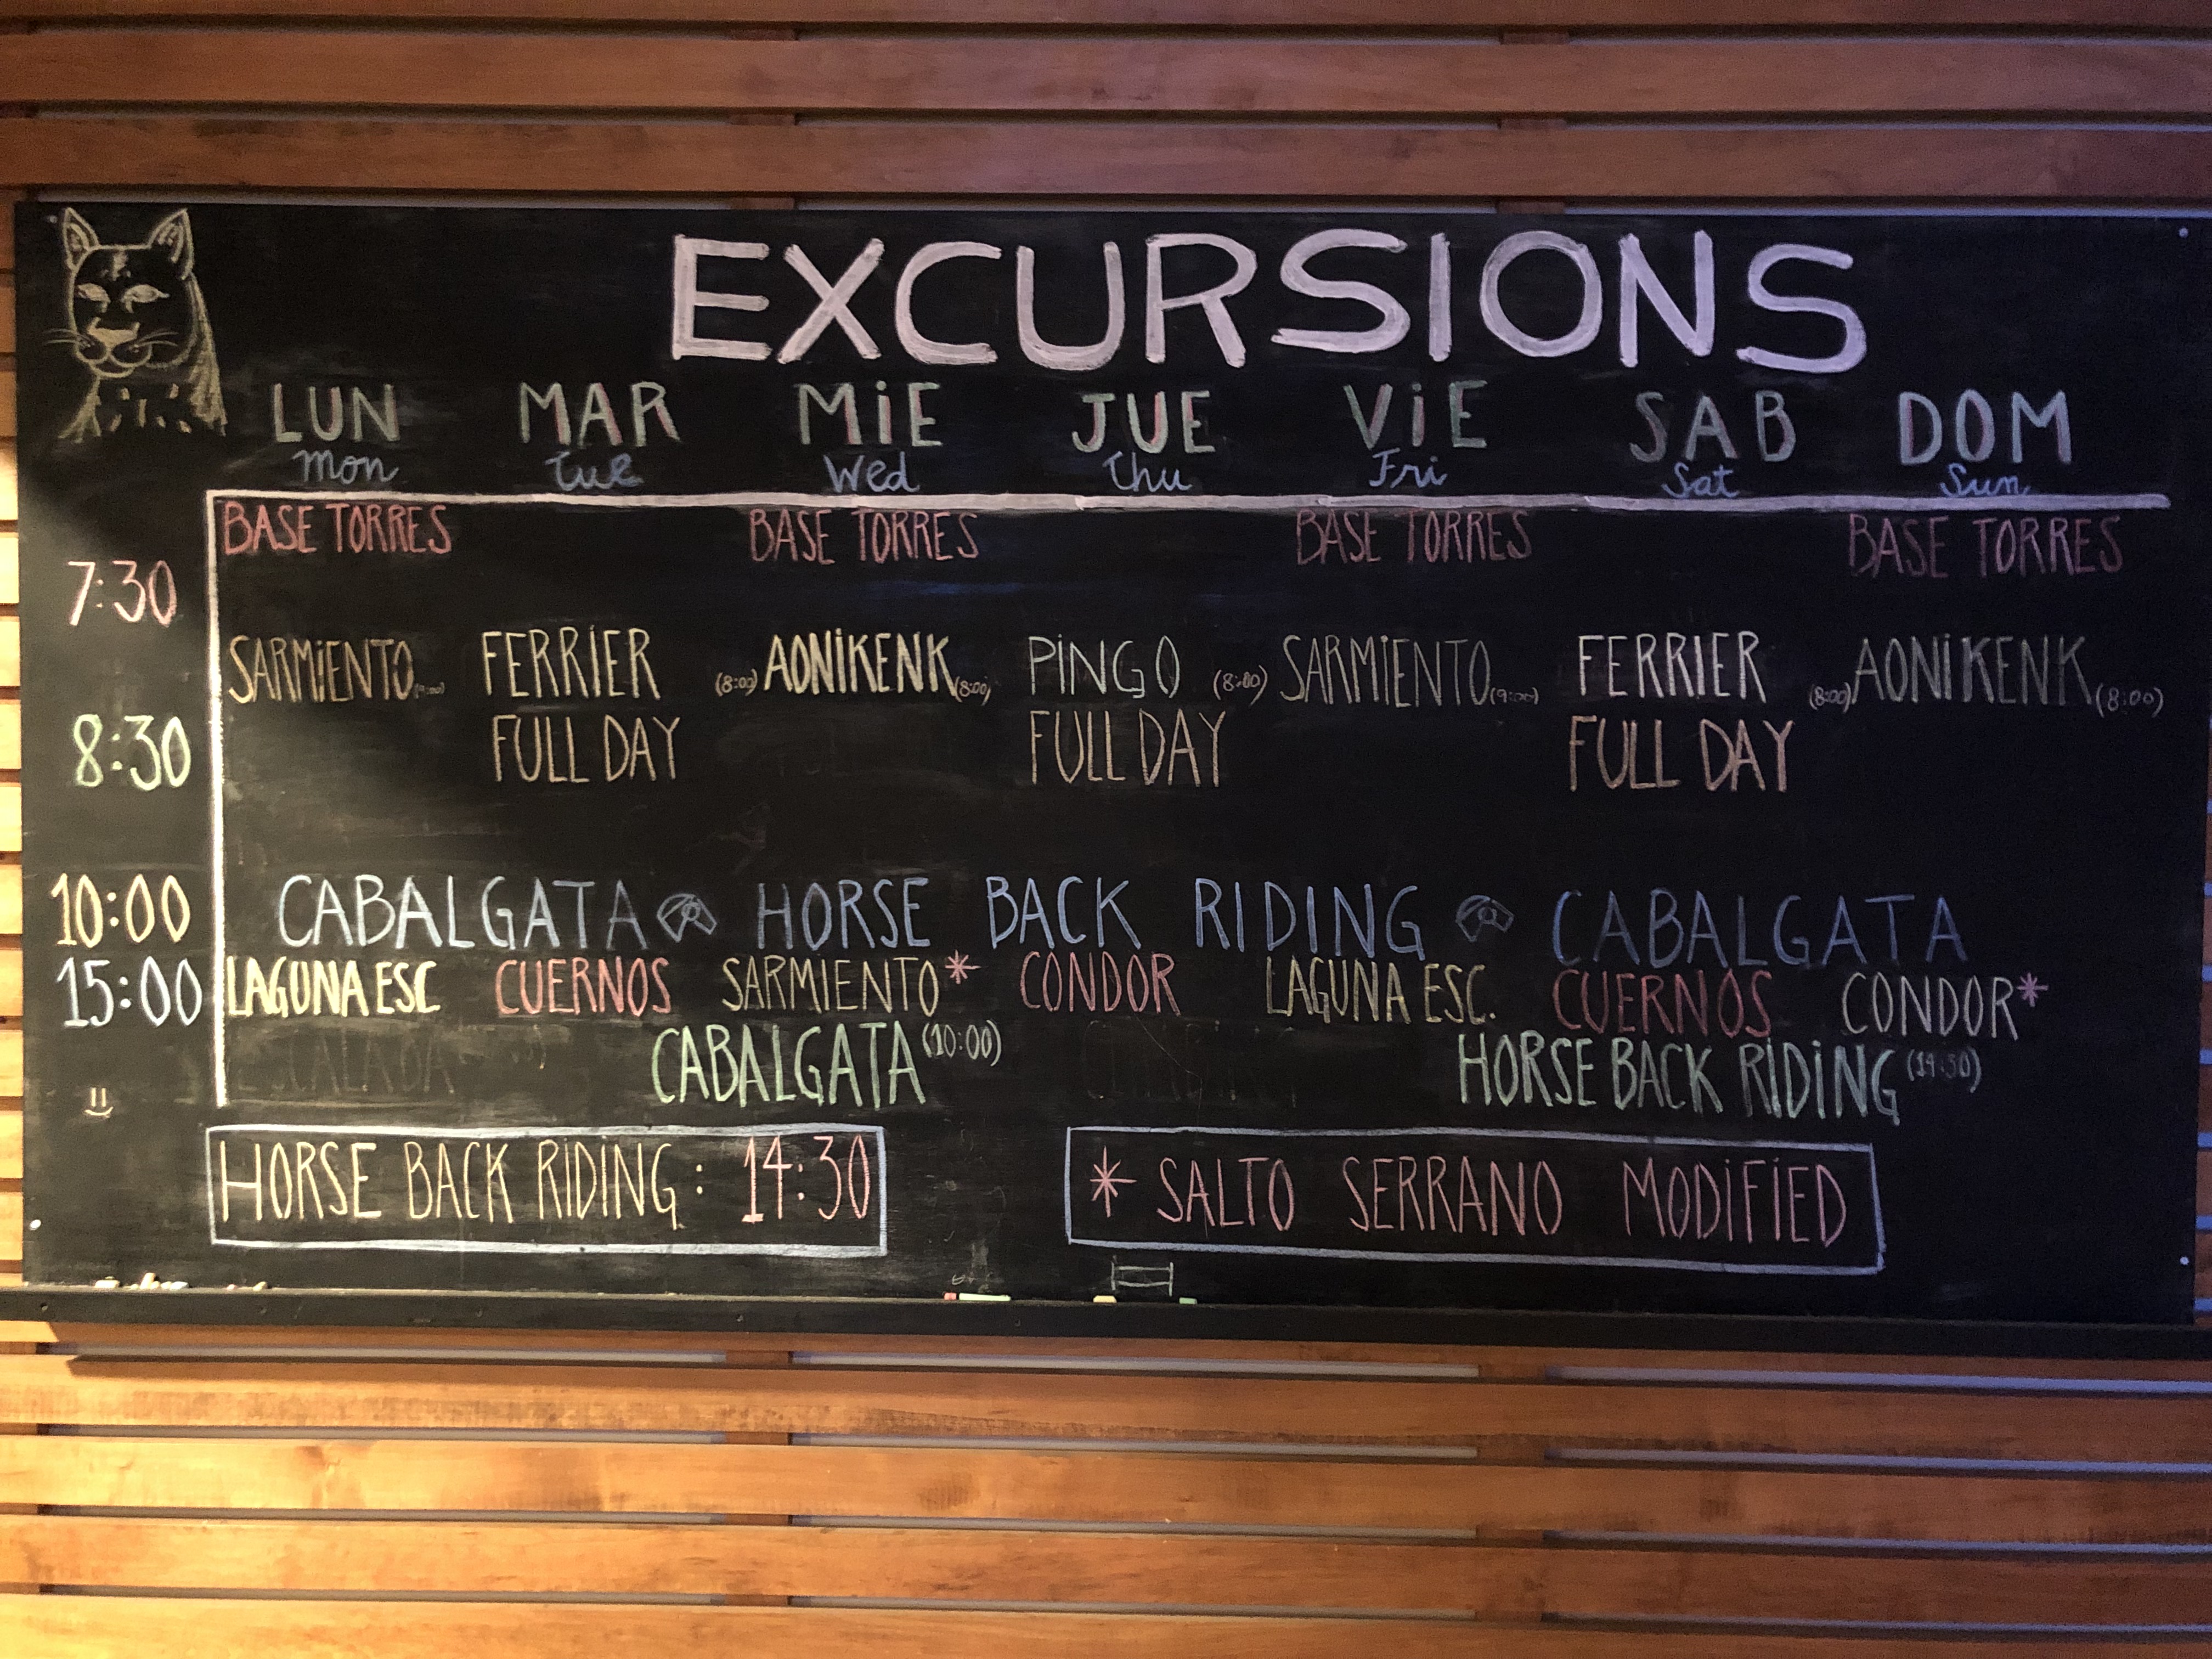 EXCURSIONS
LUN MAR MiE JUE ViE SAB DOM
Mon Tue Wed Thu Fri Sat Sun
BASE TORRES BASE TORRES BASE TORRES BASE TORRES
7:30
SARMiENTO (9:00) FERRiER (8:00) AONiKENK (8:00) PiNGO (8:00) SARMiENTO (9:00) FERRiER (8:00) AONiKENK (8:00)
8:30 FULL DAY FULL DAY FULL DAY
10:00 CABALGATA HORSE BACK RIDING CABALGATA
15:00 LAGUNA ESC CUERNOS SARMiENTO* CONDOR LAGUNA ESC. CUERNOS CONDOR*
CABALGATA (10:00) HORSE BACK RIDiNG (14:30)
HORSE BACK RiDiNG: 14:30
* SALTO SERRANO MODiFiED